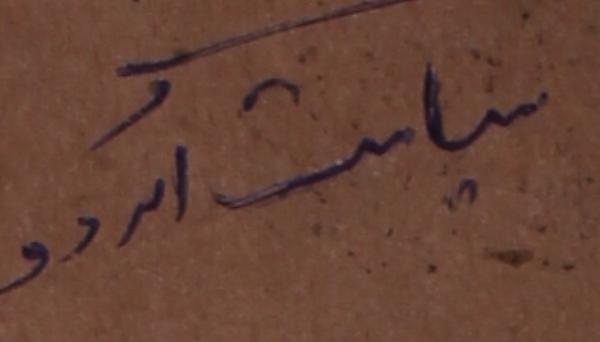 سیاست اردو